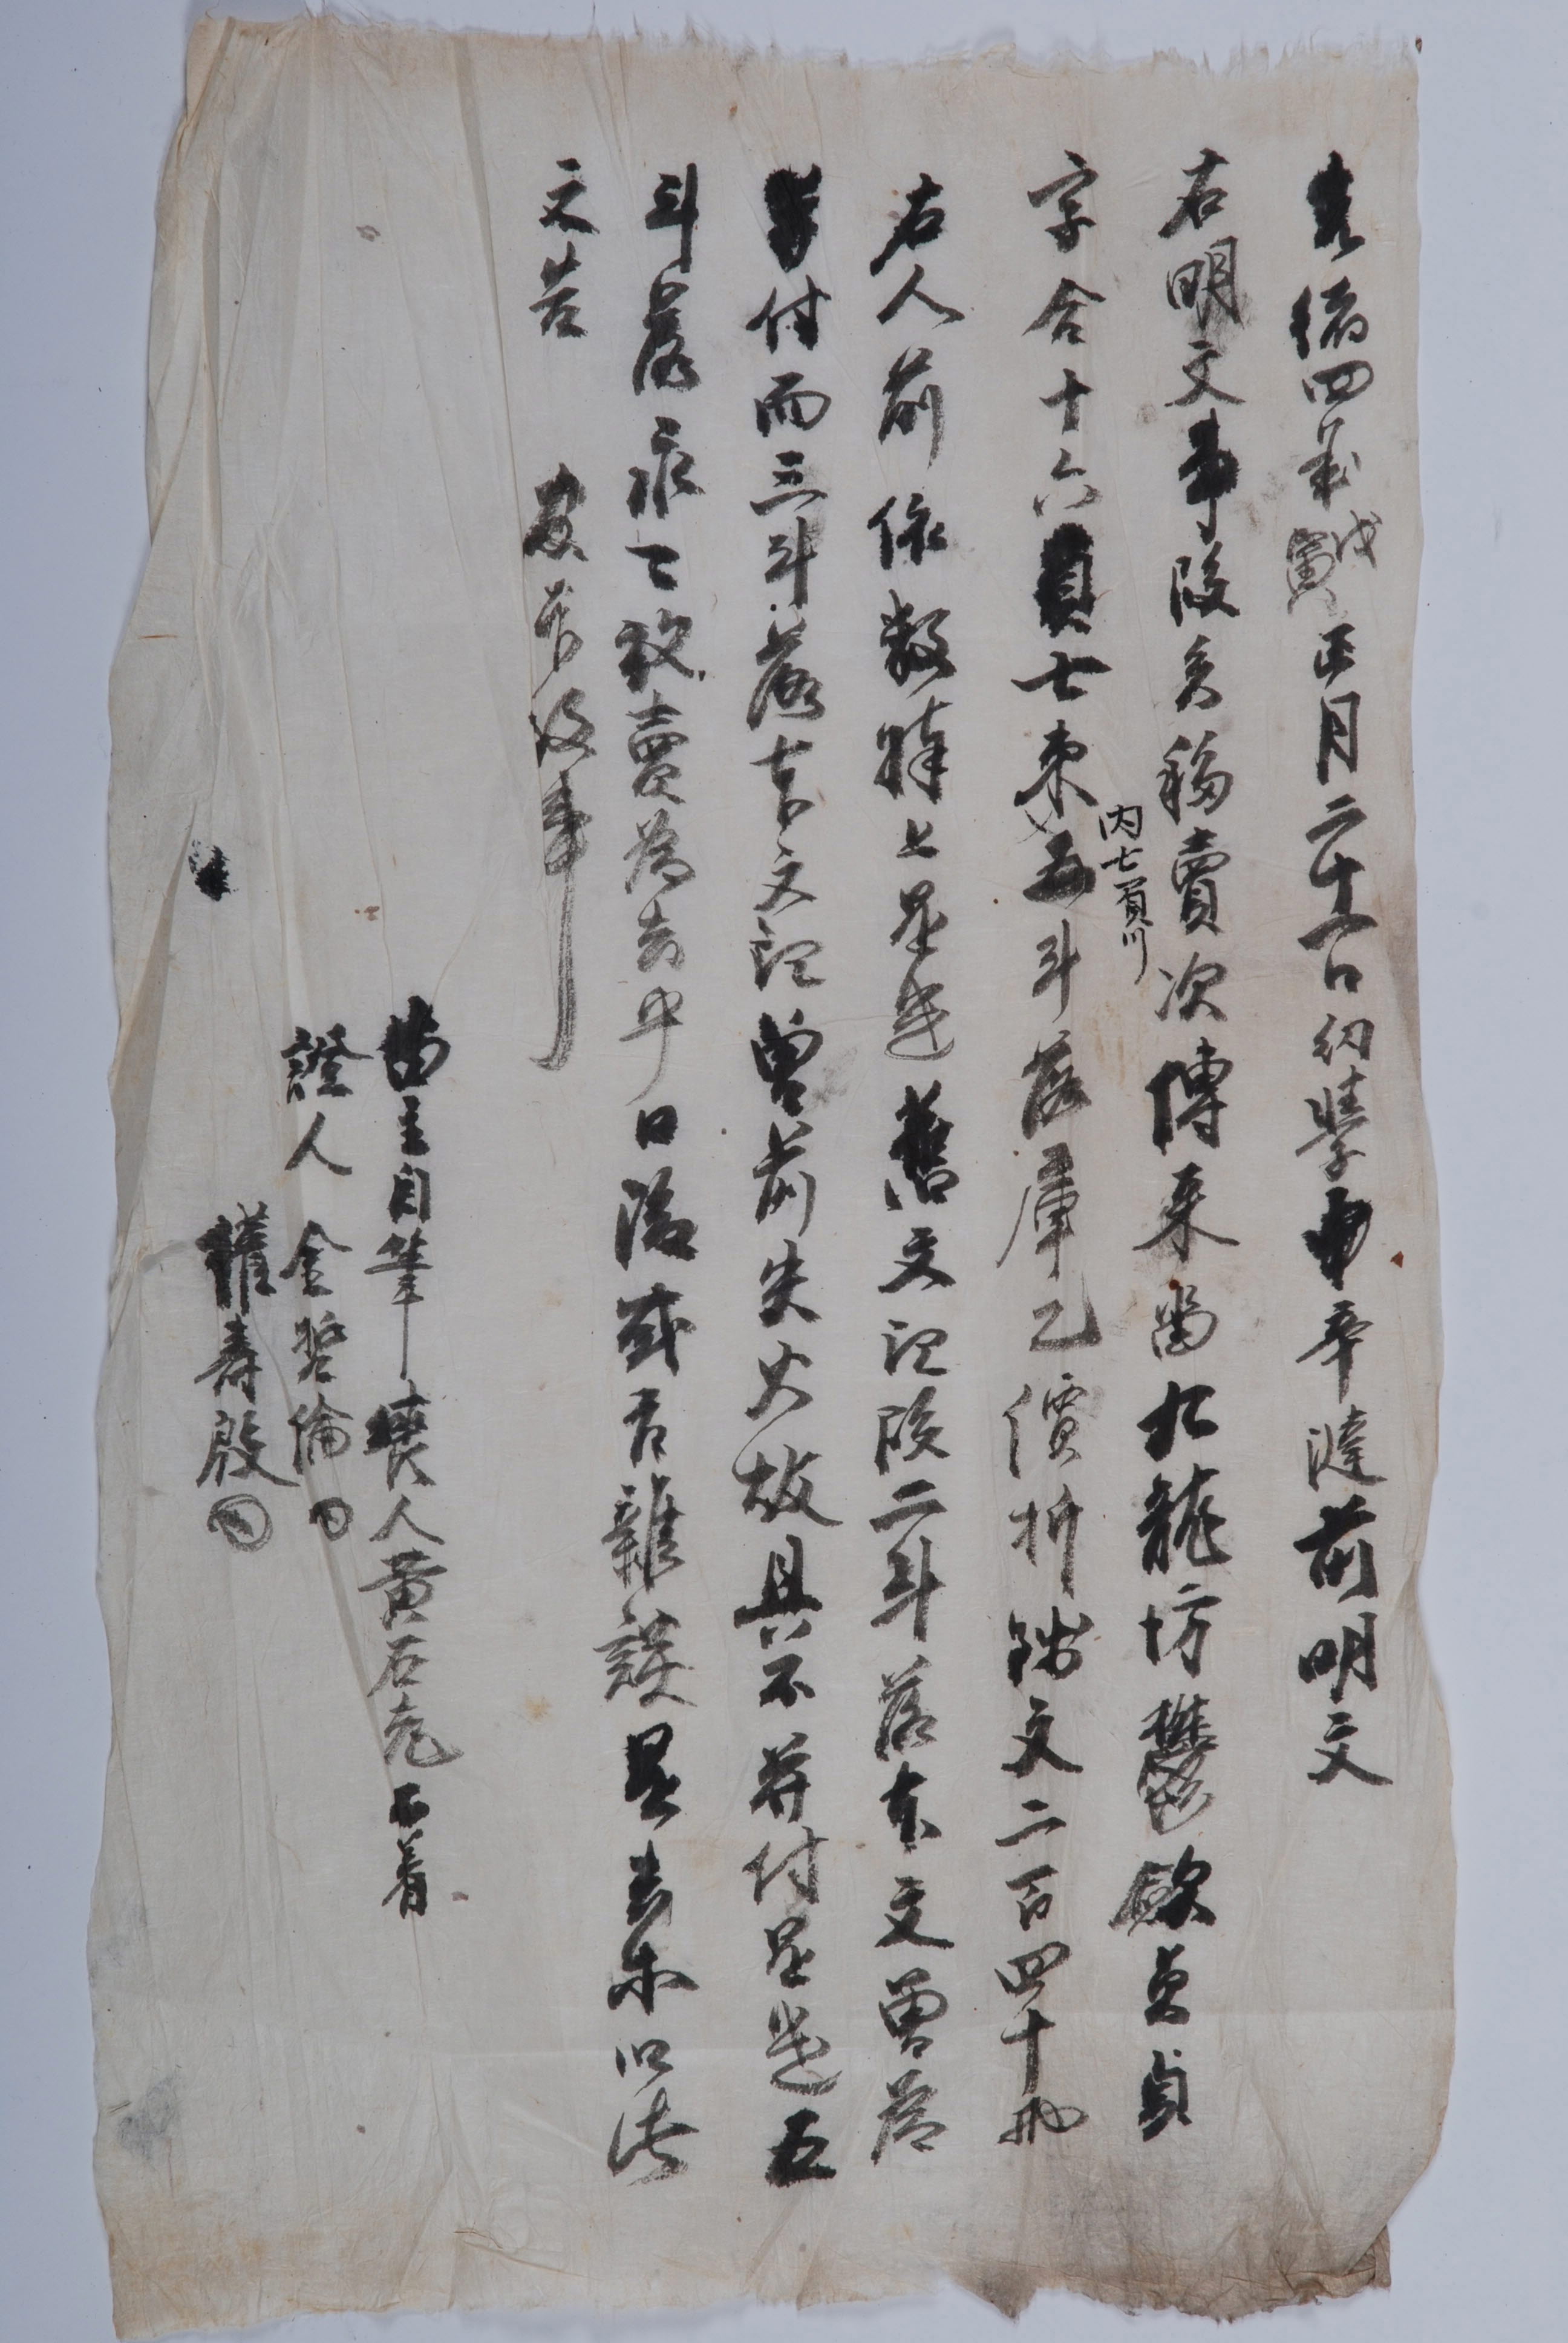 光緖四年戊寅正月二十六日幼學申辛澾前明文
右明文事段矣移賣次傳来畓九龍坊員貞
字合十六負七束五斗落庫乙價折錢文二百四十兩
內七負川
右人前依數捧上是遣舊文記段二斗落本文曾前
付而三斗落本文記曾前失火故具不幷付是遣五
斗落永永放賣爲去乎日後或有雜談是去等以此
文告官卞呈事
畓主自筆喪人黃石 不着
證人 金 倫
權壽殷